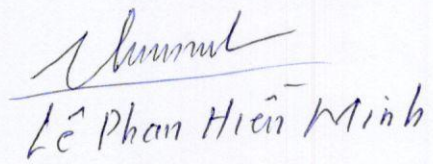 Lê Phan Hiền Minh